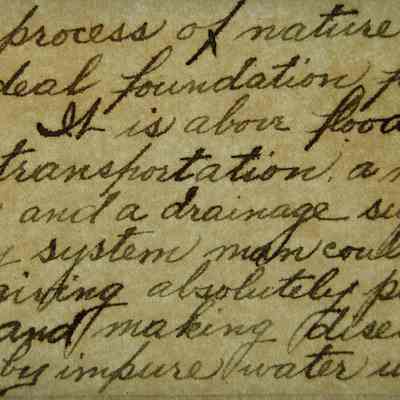 process of nature
deal foundation
It is above flood
transportation. a
and a drainage
system man coul
aiving absolutely p
and making dise
by impure water u